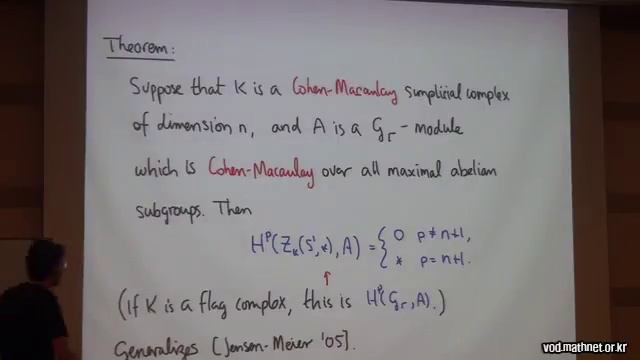 Theorem:
Suppose that K is a Cohen-Macaulay simplicial complex
of dimension n, and A is a G_Γ-module
which is Cohen-Macaulay over all maximal abelian
subgroups. Then
H^p(Z_K(S^1,*),A) = { 0 p≠n+1,
* p=n+1.
↑
(If K is a flag complex, this is H^p(G_Γ,A).)
Generalizes [Jensen-Meier '05].
vod.mathnet.or.kr